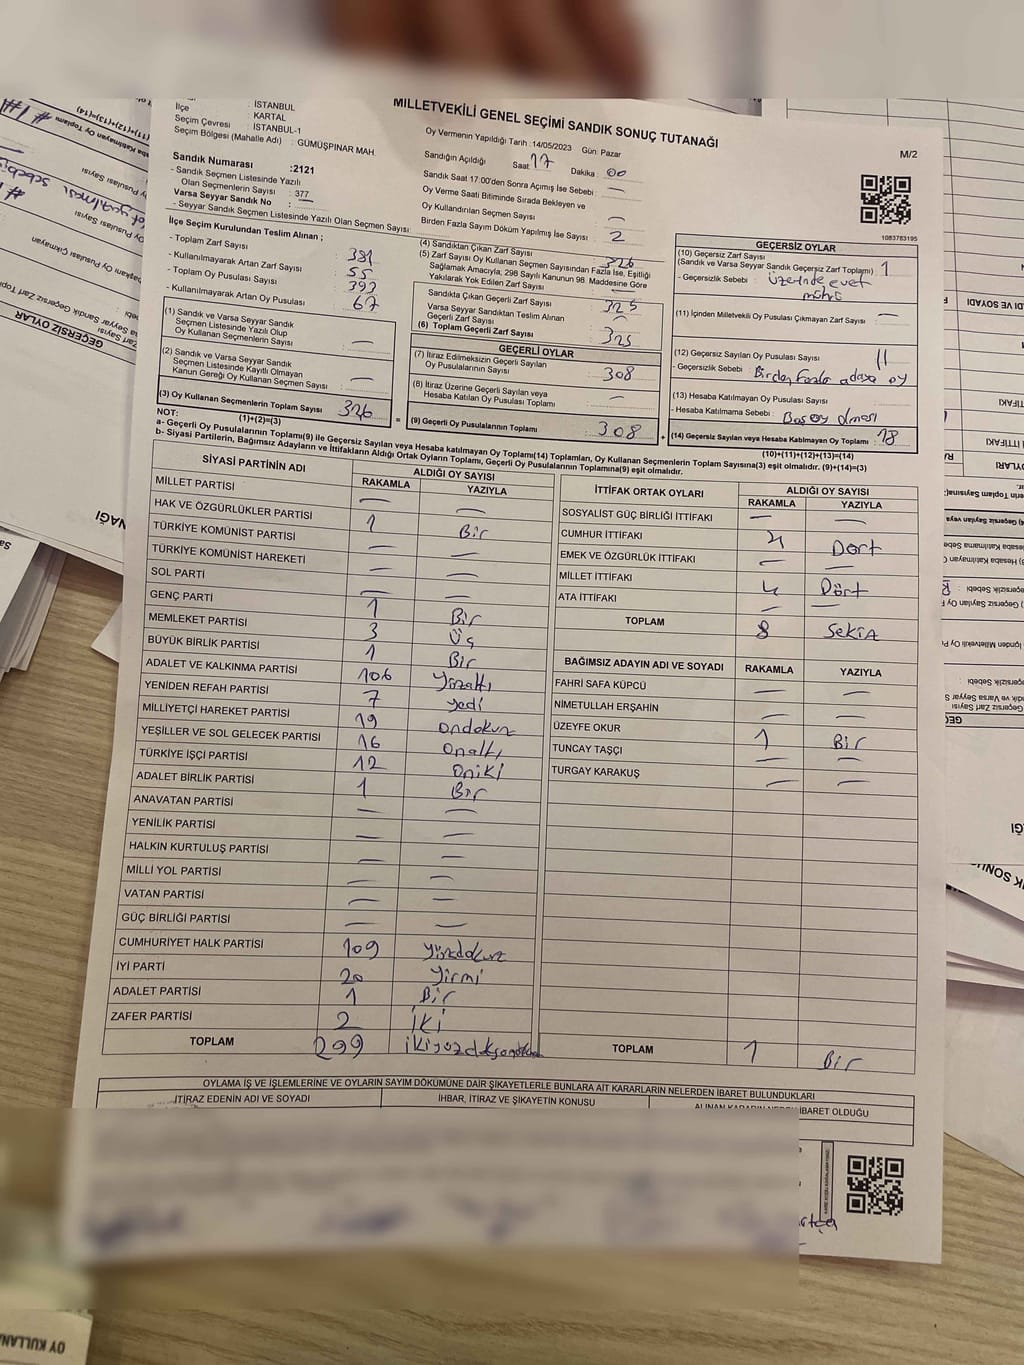 MİLLETVEKİLİ GENEL SEÇİMİ SANDIK SONUÇ TUTANAĞI
M/2
: İSTANBUL
İlçe : KARTAL
Seçim Çevresi : İSTANBUL-1
Seçim Bölgesi (Mahalle Adı) : GÜMÜŞPINAR MAH.
Sandık Numarası :2121
- Sandık Seçmen Listesinde Yazılı
Olan Seçmenlerin Sayısı : 377
Varsa Seyyar Sandık No : —
- Seyyar Sandık Seçmen Listesinde Yazılı Olan Seçmen Sayısı:
Oy Vermenin Yapıldığı Tarih : 14/05/2023 Gün: Pazar
Sandığın Açıldığı Saat 17 Dakika : 00
Sandık Saat 17:00'den Sonra Açımış İse Sebebi : —
Oy Verme Saati Bitiminde Sırada Bekleyen ve
Oy Kullandırılan Seçmen Sayısı —
Birden Fazla Sayım Döküm Yapılmış İse Sayısı 2
1083783195
İlçe Seçim Kurulundan Teslim Alınan ;
- Toplam Zarf Sayısı 381
- Kullanılmayarak Artan Zarf Sayısı 55
- Toplam Oy Pusulası Sayısı 393
- Kullanılmayarak Artan Oy Pusulası 67
(1) Sandık ve Varsa Seyyar Sandık
Seçmen Listesinde Yazılı Olup
Oy Kullanan Seçmenlerin Sayısı : —
(2) Sandık ve Varsa Seyyar Sandık
Seçmen Listesinde Kayıtlı Olmayan
Kanun Gereği Oy Kullanan Seçmen Sayısı : —
(3) Oy Kullanan Seçmenlerin Toplam Sayısı 326
(1)+(2)=(3)
(4) Sandıktan Çıkan Zarf Sayısı : 326
(5) Zarf Sayısı Oy Kullanan Seçmen Sayısından Fazla İse, Eşitliği
Sağlamak Amacıyla, 298 Sayılı Kanunun 98. Maddesine Göre
Yakılarak Yok Edilen Zarf Sayısı : —
Sandıkta Çıkan Geçerli Zarf Sayısı : 325
Varsa Seyyar Sandıktan Teslim Alınan
Geçerli Zarf Sayısı : —
(6) Toplam Geçerli Zarf Sayısı : 325
GEÇERLİ OYLAR
(7) İtiraz Edilmeksizin Geçerli Sayılan
Oy Pusulalarının Sayısı : 308
(8) İtiraz Üzerine Geçerli Sayılan veya
Hesaba Katılan Oy Pusulası Toplamı : —
(9) Geçerli Oy Pusulalarının Toplamı 308
GEÇERSİZ OYLAR
(10) Geçersiz Zarf Sayısı
(Sandık ve Varsa Seyyar Sandık Geçersiz Zarf Toplamı) 1
- Geçersizlik Sebebi : üzerinde evet
mührü
(11) İçinden Milletvekili Oy Pusulası Çıkmayan Zarf Sayısı : —
(12) Geçersiz Sayılan Oy Pusulası Sayısı : 11
- Geçersizlik Sebebi : Birden fazla adaya oy
(13) Hesaba Katılmayan Oy Pusulası Sayısı :
- Hesaba Katılmama Sebebi : Boş oy olması
(14) Geçersiz Sayılan veya Hesaba Katılmayan Oy Toplamı : 18
(10)+(11)+(12)+(13)=(14)
NOT:
a- Geçerli Oy Pusulalarının Toplamı(9) ile Geçersiz Sayılan veya Hesaba katılmayan Oy Toplamı(14) Toplamları, Oy Kullanan Seçmenlerin Toplam Sayısına(3) eşit olmalıdır. (9)+(14)=(3)
b- Siyasi Partilerin, Bağımsız Adayların ve İttifakların Aldığı Ortak Oyların Toplamı, Geçerli Oy Pusulalarının Toplamına(9) eşit olmalıdır.
SİYASİ PARTİNİN ADI ALDIĞI OY SAYISI
RAKAMLA YAZIYLA
MİLLET PARTİSİ — —
HAK VE ÖZGÜRLÜKLER PARTİSİ 1 Bir
TÜRKİYE KOMÜNİST PARTİSİ — —
TÜRKİYE KOMÜNİST HAREKETİ — —
SOL PARTİ — —
GENÇ PARTİ 1 Bir
MEMLEKET PARTİSİ 3 Üç
BÜYÜK BİRLİK PARTİSİ 1 Bir
ADALET VE KALKINMA PARTİSİ 106 Yüzaltı
YENİDEN REFAH PARTİSİ 7 yedi
MİLLİYETÇİ HAREKET PARTİSİ 19 ondokuz
YEŞİLLER VE SOL GELECEK PARTİSİ 16 onaltı
TÜRKİYE İŞÇİ PARTİSİ 12 oniki
ADALET BİRLİK PARTİSİ 1 Bir
ANAVATAN PARTİSİ — —
YENİLİK PARTİSİ — —
HALKIN KURTULUŞ PARTİSİ — —
MİLLİ YOL PARTİSİ — —
VATAN PARTİSİ — —
GÜÇ BİRLİĞİ PARTİSİ — —
CUMHURİYET HALK PARTİSİ 109 yüzdokuz
İYİ PARTİ 20 yirmi
ADALET PARTİSİ 1 Bir
ZAFER PARTİSİ 2 iki
TOPLAM 299 ikiyüzdoksandokuz
İTTİFAK ORTAK OYLARI ALDIĞI OY SAYISI
RAKAMLA YAZIYLA
SOSYALİST GÜÇ BİRLİĞİ İTTİFAKI — —
CUMHUR İTTİFAKI 4 Dört
EMEK VE ÖZGÜRLÜK İTTİFAKI — —
MİLLET İTTİFAKI 4 Dört
ATA İTTİFAKI — —
TOPLAM 8 Sekiz
BAĞIMSIZ ADAYIN ADI VE SOYADI RAKAMLA YAZIYLA
FAHRİ SAFA KÜPCÜ — —
NİMETULLAH ERŞAHİN — —
ÜZEYFE OKUR 1 Bir
TUNCAY TAŞÇI — —
TURGAY KARAKUŞ — —
TOPLAM 1 Bir
OYLAMA İŞ VE İŞLEMLERİNE VE OYLARIN SAYIM DÖKÜMÜNE DAİR ŞİKAYETLERLE BUNLARA AİT KARARLARIN NELERDEN İBARET BULUNDUKLARI
İTİRAZ EDENİN ADI VE SOYADI İHBAR, İTİRAZ VE ŞİKAYETİN KONUSU İBARET OLDUĞU